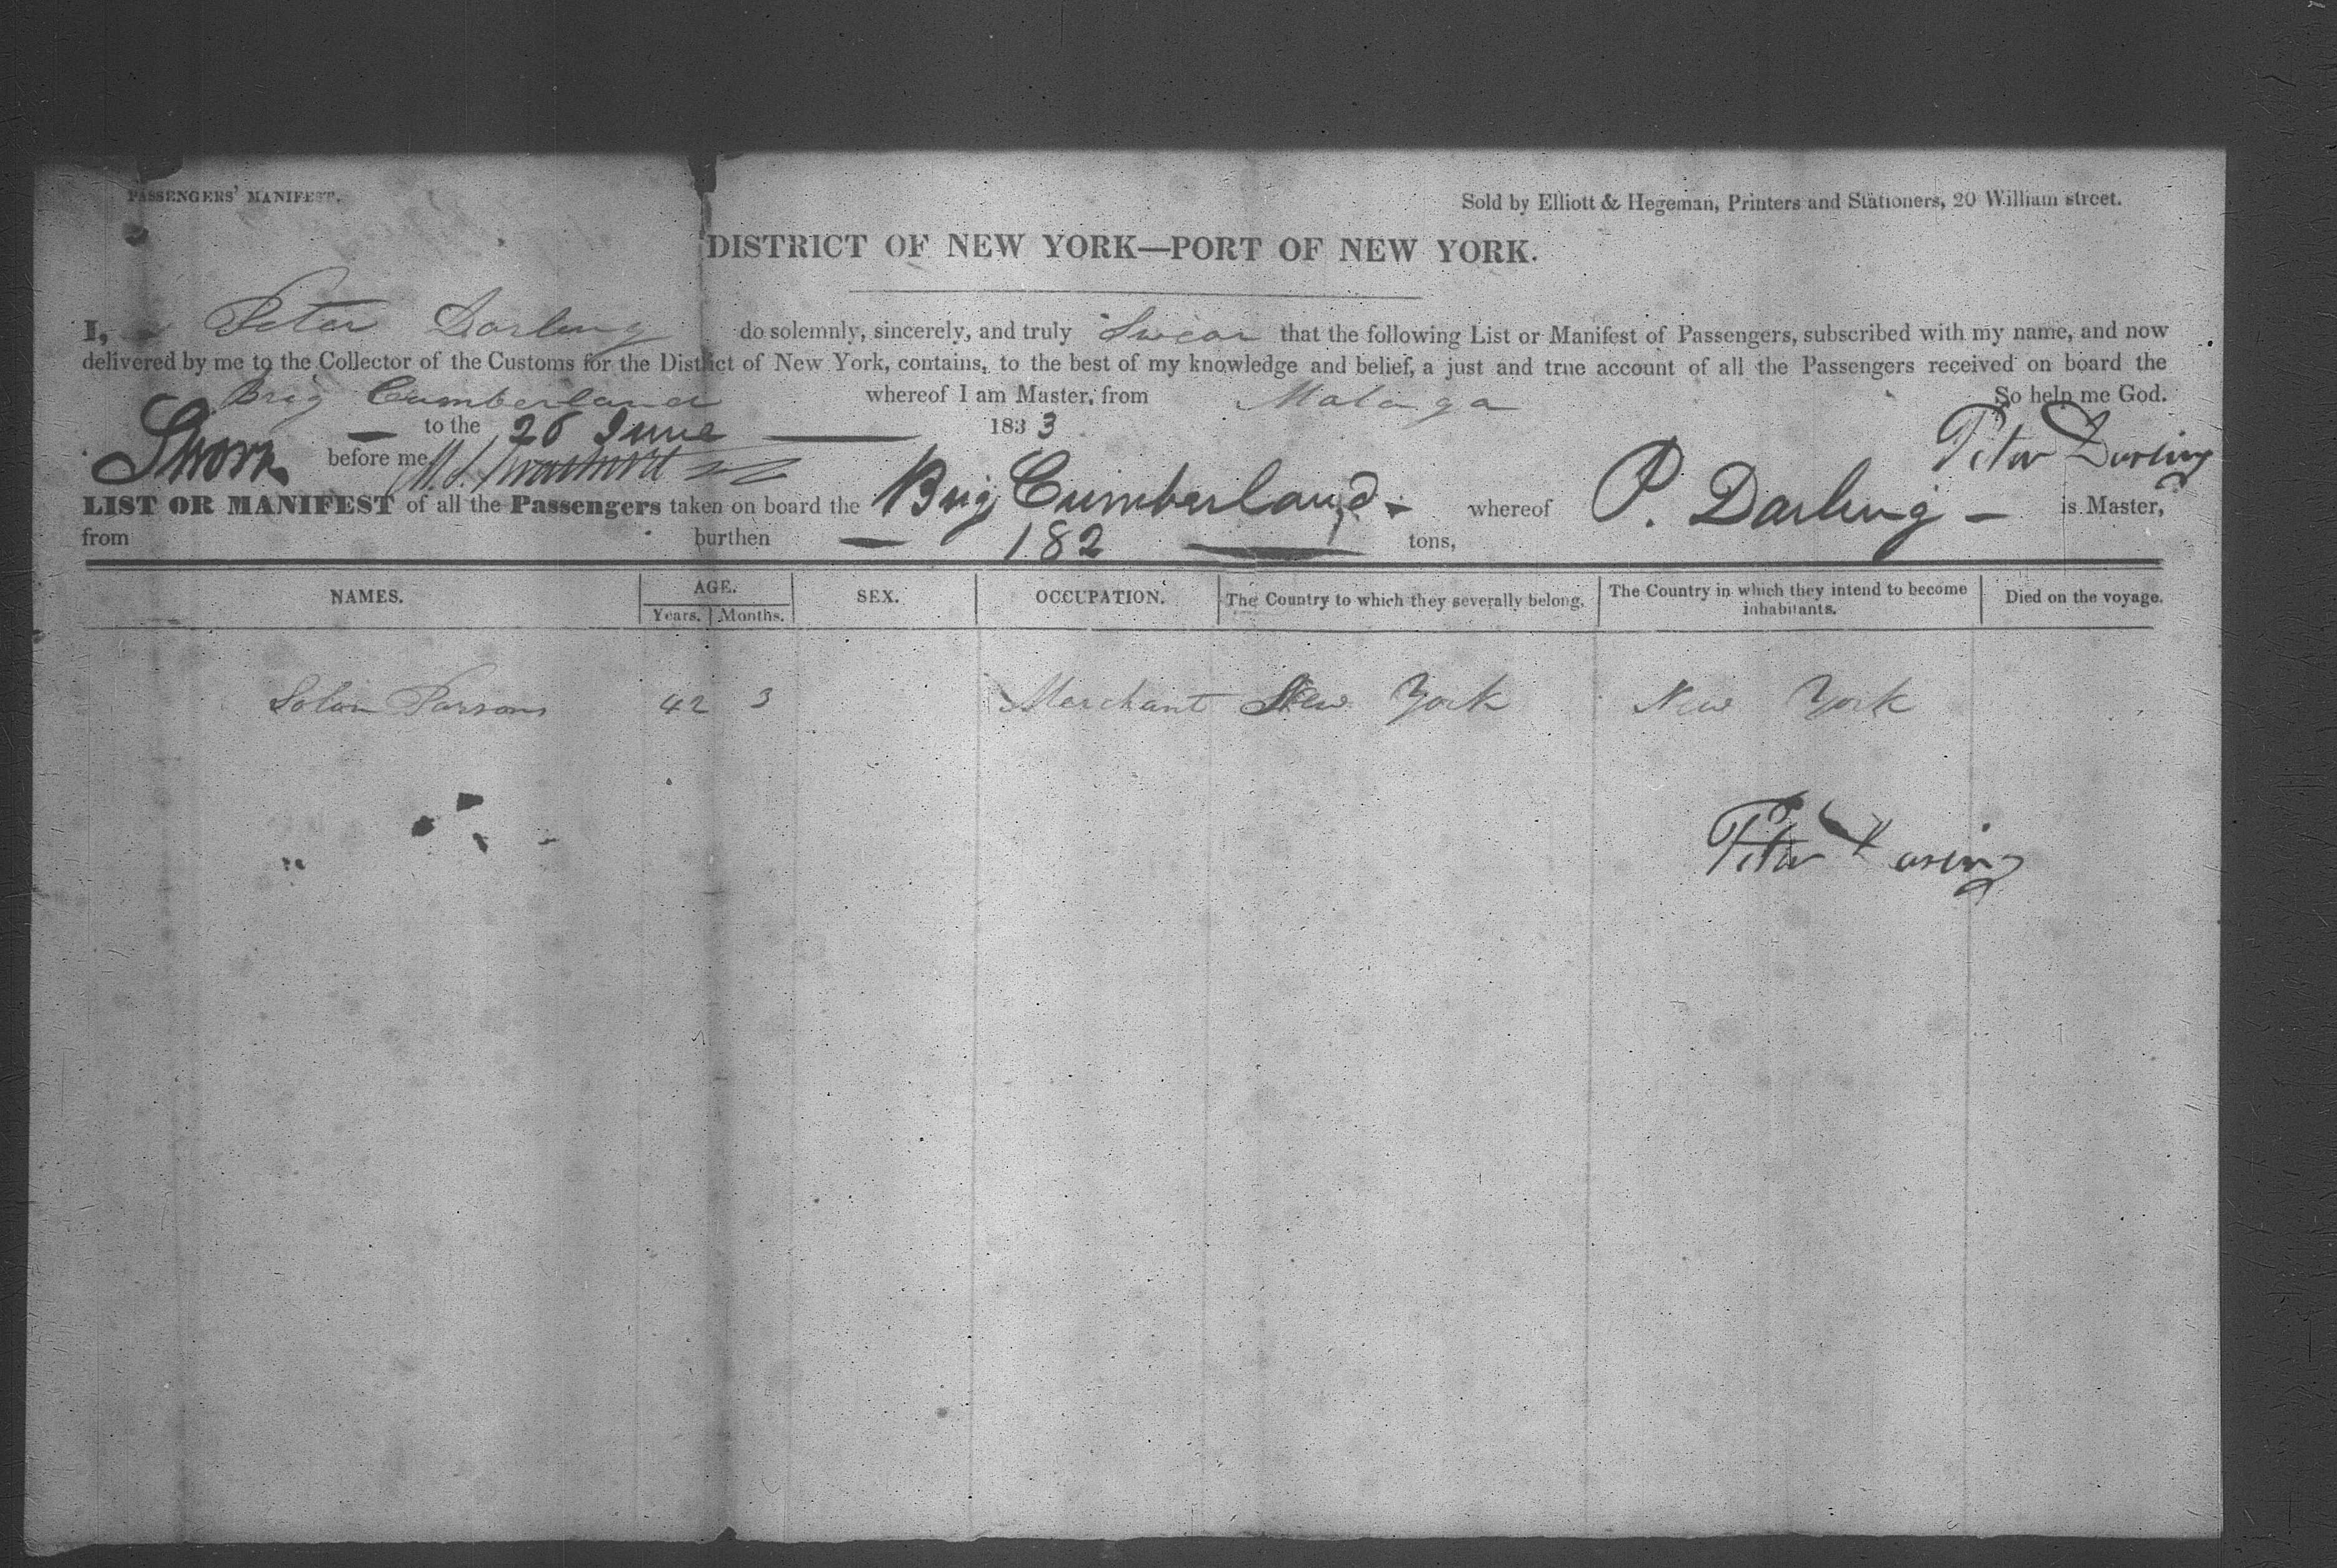 PASSENGERS' MANIFEST.
Sold by Elliott & Hegeman, Printers and Stationers, 20 William street.
DISTRICT OF NEW YORK—PORT OF NEW YORK.
I, Peter Darling do solemnly, sincerely, and truly Swear that the following List or Manifest of Passengers, subscribed with my name, and now
delivered by me to the Collector of the Customs for the District of New York, contains, to the best of my knowledge and belief, a just and true account of all the Passengers received on board the
Brig Cumberland whereof I am Master, from Malaga So help me God.
to the 26 June 1833
Peter Darling
Sworn before me
LIST OR MANIFEST of all the Passengers taken on board the Brig Cumberland whereof P. Darling is Master,
from burthen 182 tons,
NAMES. AGE. SEX. OCCUPATION. The Country to which they severally belong. The Country in which they intend to become inhabitants. Died on the voyage.
Years. Months.
Solon Parsons 42 3 Merchant New York New York
Peter Darling